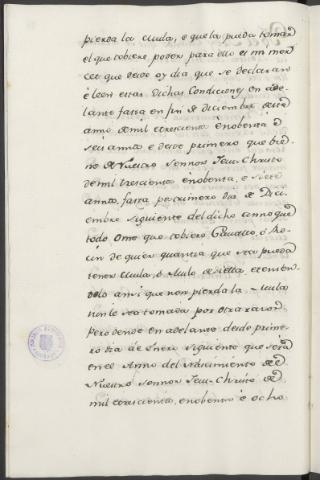 pierda la Mula, e que la pueda tomar
el que tobiere poder para ello es mi mer
cet que desde oy dia que se declaran
é leen estas dichas Condiciones en ade
lante fasta en fin de diciembre deste
anno de mil trescientos é nobenta é
seis annos e desde primero que bie
ne de Nuestro Sennor Jesu-Christo
de mil trescientos nobenta, é siete
annos, fasta postrimero dia de Dici
embre siguiente del dicho anno que
todo Ome que tobiere Cavallo, ó Ro
cin de quier quantia que sea pueda
tener Mula, ó Mulo de silla, et en bu
dolo ansi que non pierda la Mula
nin le sea tomada por otra razon
Pero dende en adelante desde prime
ro dia de Enero siguiente que será
en el Anno del Nascimiento de
Nuestro Sennor Jesu-Christo de
mil trescientos, nobenta é ocho